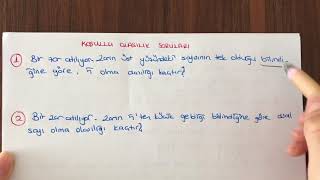 KOŞULLU OLASILIK SORULARI
① Bir zar atılıyor. Zarın üst yüzündeki sayının tek olduğu bilindi-
ğine göre, 5 olma olasılığı kaçtır?
② Bir zar atılıyor. Zarın 5'ten küçük geldiği bilindiğine göre asal
sayı olma olasılığı kaçtır?